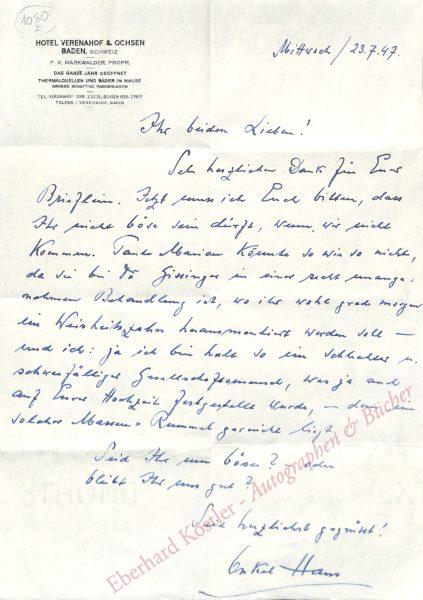 1080
2
HOTEL VERENAHOF & OCHSEN
BADEN, SCHWEIZ
F. X. MARKWALDER, PROPR.
DAS GANZE JAHR GEÖFFNET
THERMALQUELLEN UND BÄDER IM HAUSE
GROSSE SCHATTIGE PARKANLAGEN
TELEGR.: VERENAHOF, BADEN
Mittwoch / 23.7.47.
Ihr beiden Lieben!
Sehr herzlichen Dank für Euer
Brieflein. Jetzt muss ich Euch bitten, dass
Ihr nicht böse sein dürft, wenn wir nicht
kommen. Tante Marion könnte so wie so nicht,
da sie bei Dr Gissinger in einer recht unange-
nehmen Behandlung ist, wo ihr wohl grade morgen
ein Weisheitszahn herausmontiert werden soll –
und ich: ja ich bin halt so ein schlechter u.
schwerfälliger Gesellschaftsmensch, was ja auch
auf Eurer Hochzeit festgestellt wurde, – dem ein
solcher Massen-Rummel gar nicht liegt.
Seid Ihr nun böse? – oder
bleibt Ihr uns gut?
Seid herzlichst gegrüsst!
Onkel Hans
Eberhard Köstler - Autographen & Bücher